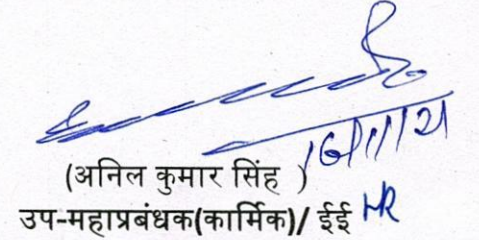 16/11/21
(अनिल कुमार सिंह )
उप-महाप्रबंधक(कार्मिक)/ ईई HR